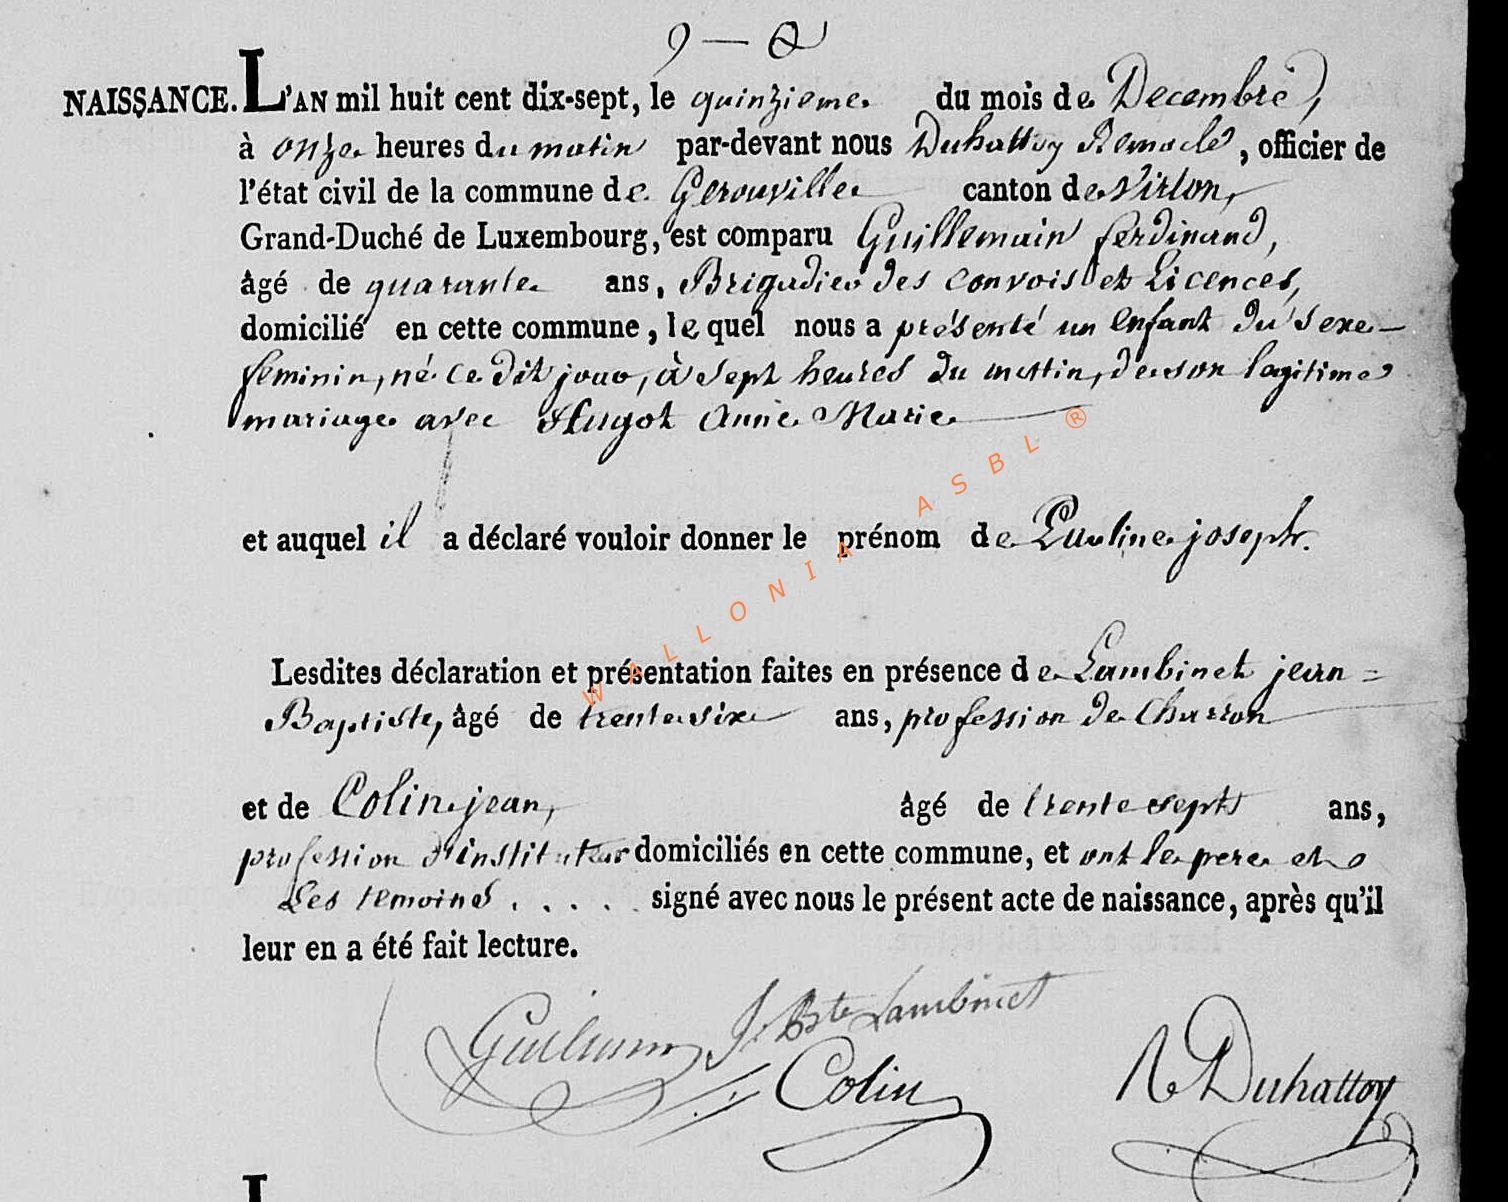 NAISSANCE. L'AN mil huit cent dix-sept, le quinzieme du mois de Decembre,
à onze heures du matin par-devant nous Duhattoy Remacle, officier de
l'état civil de la commune de Gerouville canton de Virton,
Grand-Duché de Luxembourg, est comparu Guillemain ferdinand,
âgé de quarante ans, Brigadier des convois et Licences,
domicilié en cette commune, le quel nous a présenté un Enfant du Sexe
feminin, né ce dit jour, à sept heures du mattin, de son legitime
mariage avec Hugot Anne Marie
et auquel il a déclaré vouloir donner le prénom de Pauline joseph.
Lesdites déclaration et présentation faites en présence de Lambinet jean =
Baptiste, âgé de trente six ans, profession de Charron
et de Colin jean, âgé de trente sept ans,
profession d'instituteur domiciliés en cette commune, et ont le pere et
Les temoins . . . . . signé avec nous le présent acte de naissance, après qu'il
leur en a été fait lecture.
J. Bte Lambinet
Colin
R Duhattoy
WALLONIA ASBL ®